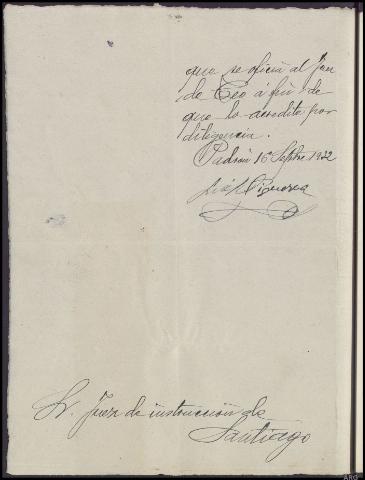 que se oficia al Juez
de Teo á fin de
que lo acredite por
diligencia.
Padrón 16 Sepbre 1922
Figueroa
Sr. Juez de instrucción de
Santiago
ARG